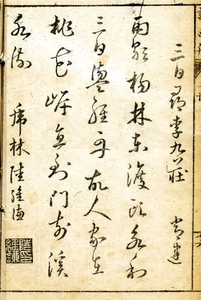 三日尋李九莊 常建
雨歇楊林東渡頭永和
三日盪輕舟故人家在
桃花岸直到門前溪
水流 虎林陸維